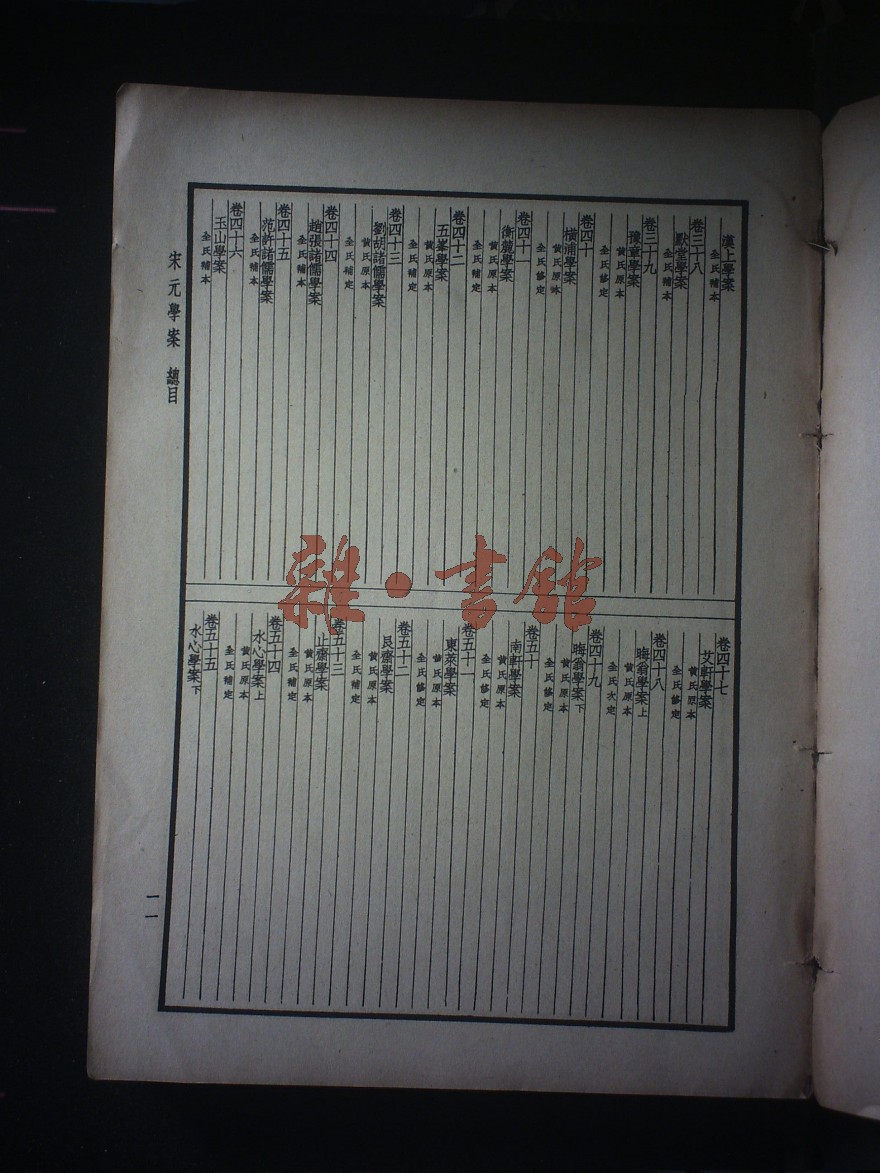 漢上學案
全氏補本
卷三十八
默堂學案
全氏補本
卷三十九
豫章學案
黃氏原本
全氏修定
卷四十
橫浦學案
黃氏原本
全氏修定
卷四十一
衡麓學案
黃氏原本
全氏修定
卷四十二
五峯學案
黃氏原本
全氏補定
卷四十三
劉胡諸儒學案
黃氏原本
全氏補定
卷四十四
趙張諸儒學案
全氏補本
卷四十五
范許諸儒學案
全氏補本
卷四十六
玉山學案
全氏補本
卷四十七
艾軒學案
黃氏原本
全氏修定
卷四十八
晦翁學案上
黃氏原本
全氏次定
卷四十九
晦翁學案下
黃氏原本
全氏修定
卷五十
南軒學案
黃氏原本
全氏修定
卷五十一
東萊學案
黃氏原本
全氏修定
卷五十二
艮齋學案
黃氏原本
全氏補定
卷五十三
止齋學案
黃氏原本
全氏補定
卷五十四
水心學案上
黃氏原本
全氏補定
卷五十五
水心學案下
宋元學案 總目
一一
雜·書館